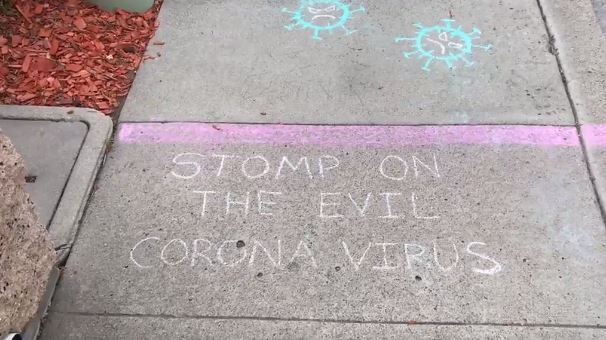 STOMP ON
THE EVIL
CORONA VIRUS